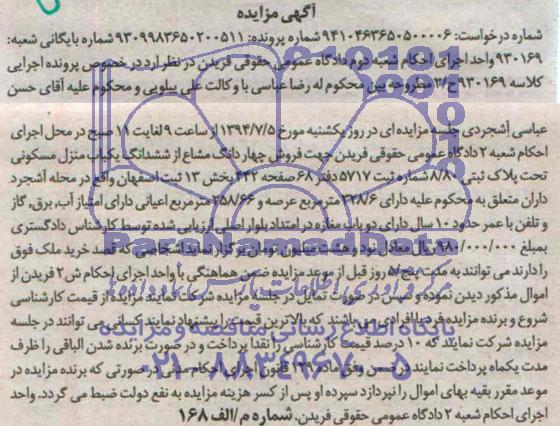 آگهی مزایده
شماره درخواست: ۹۴۱۰۴۶۳۶۵۰۵۰۰۰۰۶ شماره پرونده: ۹۳۰۹۹۸۳۶۵۰۲۰۰۵۱۱ شماره بایگانی شعبه:
۹۳۰۱۶۹ واحد اجرای احکام شعبه دوم دادگاه عمومی حقوقی فریدن در نظر دارد در خصوص پرونده اجرایی
کلاسه ۹۳۰۱۶۹ج/۲ مطروحه بین محکوم له رضا عباسی با وکالت علی بیلویی و محکوم علیه آقای حسن
عباسی آشجردی جلسه مزایده ای در روز یکشنبه مورخ ۱۳۹۴/۷/۵ از ساعت ۹ لغایت ۱۱ صبح در محل اجرای
احکام شعبه ۲ دادگاه عمومی حقوقی فریدن جهت فروش چهار دانگ مشاع از ششدانگ یکباب منزل مسکونی
تحت پلاک ثبتی ۸/۸۰ شماره ثبت ۵۷۱۷ دفتر ۶۸ صفحه ۴۴۲ بخش ۱۳ ثبت اصفهان واقع در محله آشجرد
داران متعلق به محکوم علیه دارای ۳۲۸/۶ مترمربع عرصه و ۲۵۸/۶۶ مترمربع اعیانی دارای امتیاز آب، برق، گاز
و تلفن با عمر حدود ۱۰ سال دارای دو باب مغازه در امتداد بلوار اصلی ارزیابی شده توسط کارشناس دادگستری
بمبلغ ۹۸۰/۰۰۰/۰۰۰ ریال معادل نود و هشت میلیون تومان برگزار نماید اشخاصی که قصد خرید ملک فوق
را دارند می توانند به مدت پنج/۵ روز قبل از موعد مزایده ضمن هماهنگی با واحد اجرای احکام ش ۲ فریدن از
اموال مذکور دیدن نموده و سپس در صورت تمایل در جلسه مزایده شرکت نمایند مزایده از قیمت کارشناسی
شروع و برنده مزایده فرد یا افرادی می باشند که بالاترین قیمت را پیشنهاد نمایند کسانی می توانند در جلسه
مزایده شرکت نمایند که ۱۰ درصد قیمت کارشناسی را نقدا پرداخت و در صورت برنده شدن الباقی را ظرف
مدت یکماه پرداخت نمایند در ضمن وفق ماده ۱۲۹ قانون اجرای احکام مدنی در صورتی که برنده مزایده در
موعد مقرر بقیه بهای اموال را نپردازد سپرده او پس از کسر هزینه مزایده به نفع دولت ضبط می گردد. واحد
اجرای احکام شعبه ۲ دادگاه عمومی حقوقی فریدن. شماره م/الف ۱۶۸
ParsNamadData
پایگاه اطلاع رسانی مناقصه و مزایده
۰۲۱-۸۸۳۴۹۶۷۰-۵